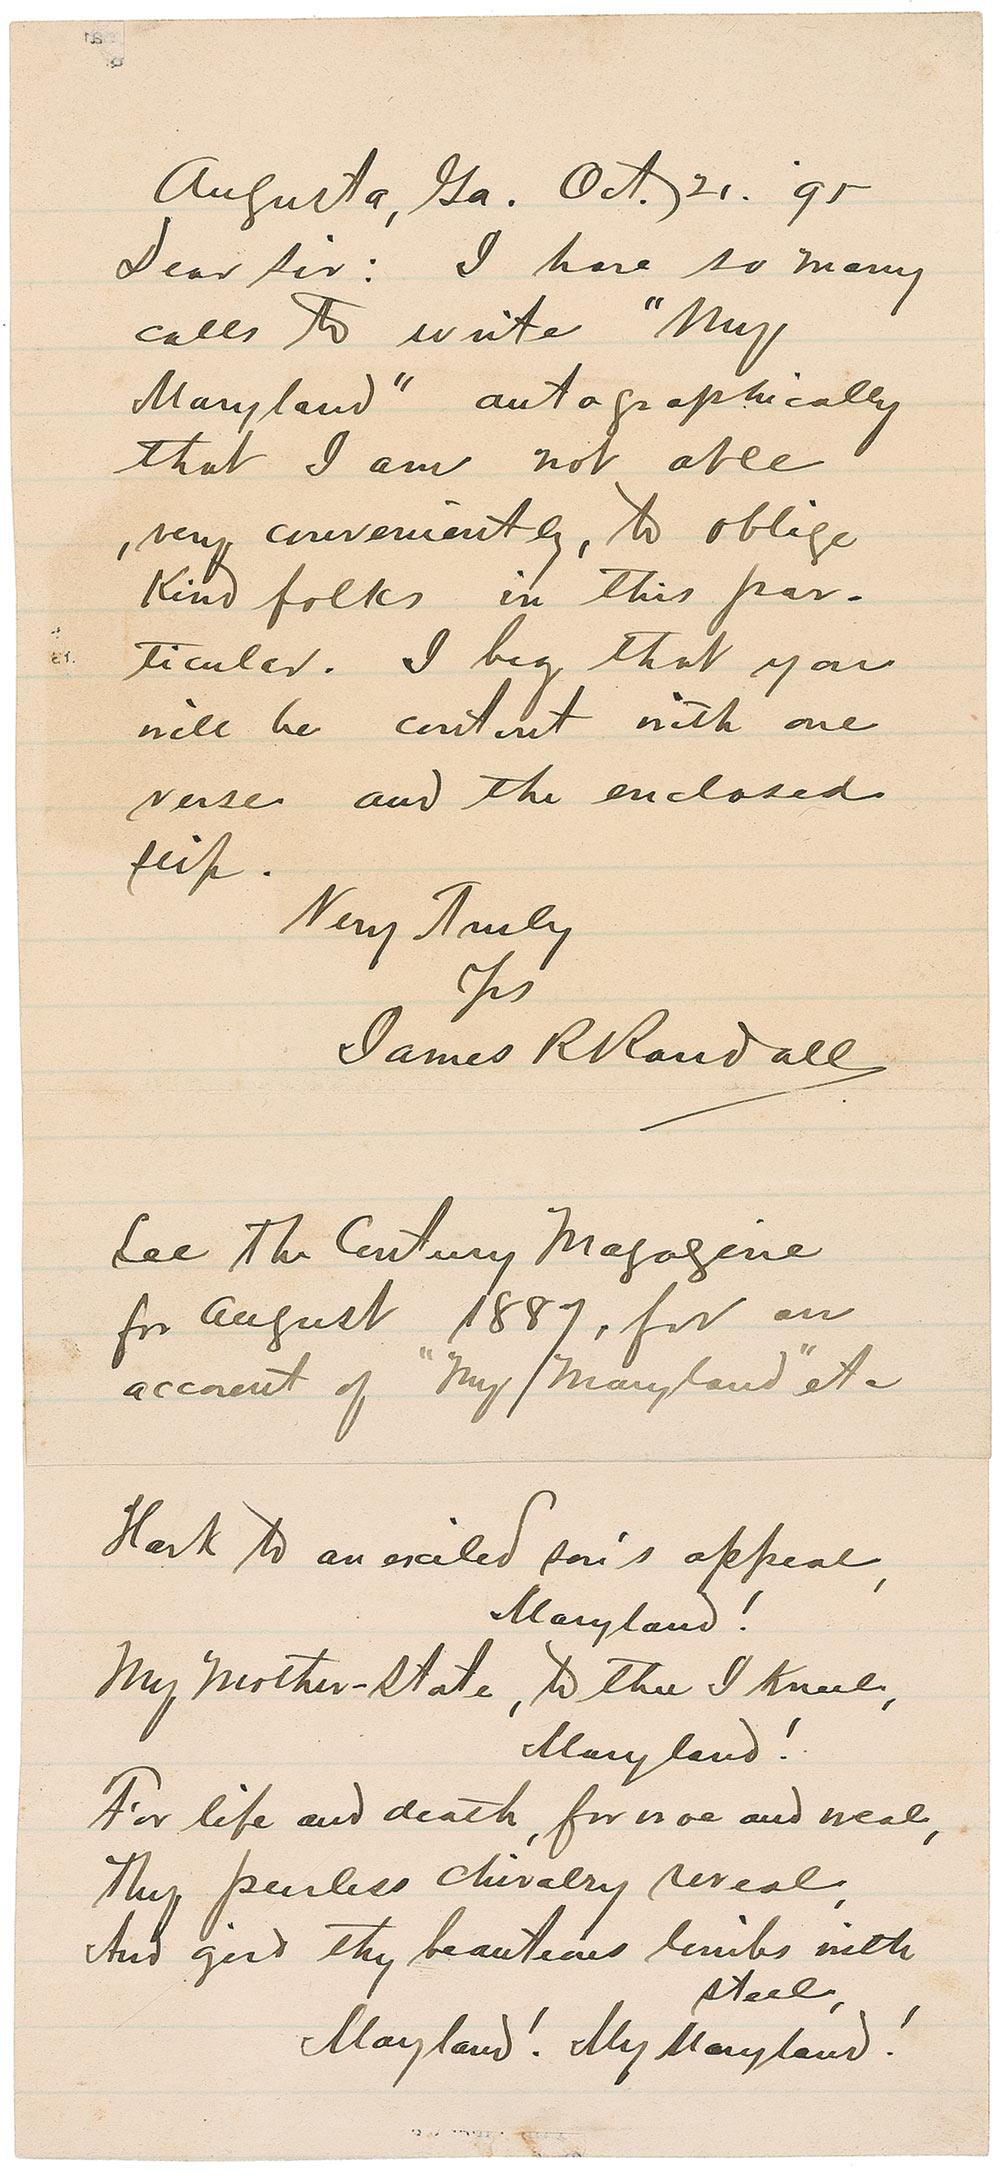 Augusta, Ga. Oct. 21. '95
Dear Sir: I have so many
calls to write "My
Maryland" autographically
that I am not able
, very conveniently, to oblige
kind folks in this par-
ticular. I beg that you
will be content with one
verse and the enclosed
slip.
Very Truly
Yrs
James R Randall
See The Century Magazine
for August 1887, for an
account of "My Maryland" etc
Hark to an exiled son's appeal,
Maryland!
My Mother-State, to thee I kneel,
Maryland!
For life and death, for woe and weal,
Thy peerless chivalry reveal,
And gird thy beauteous limbs with
steel,
Maryland! My Maryland!